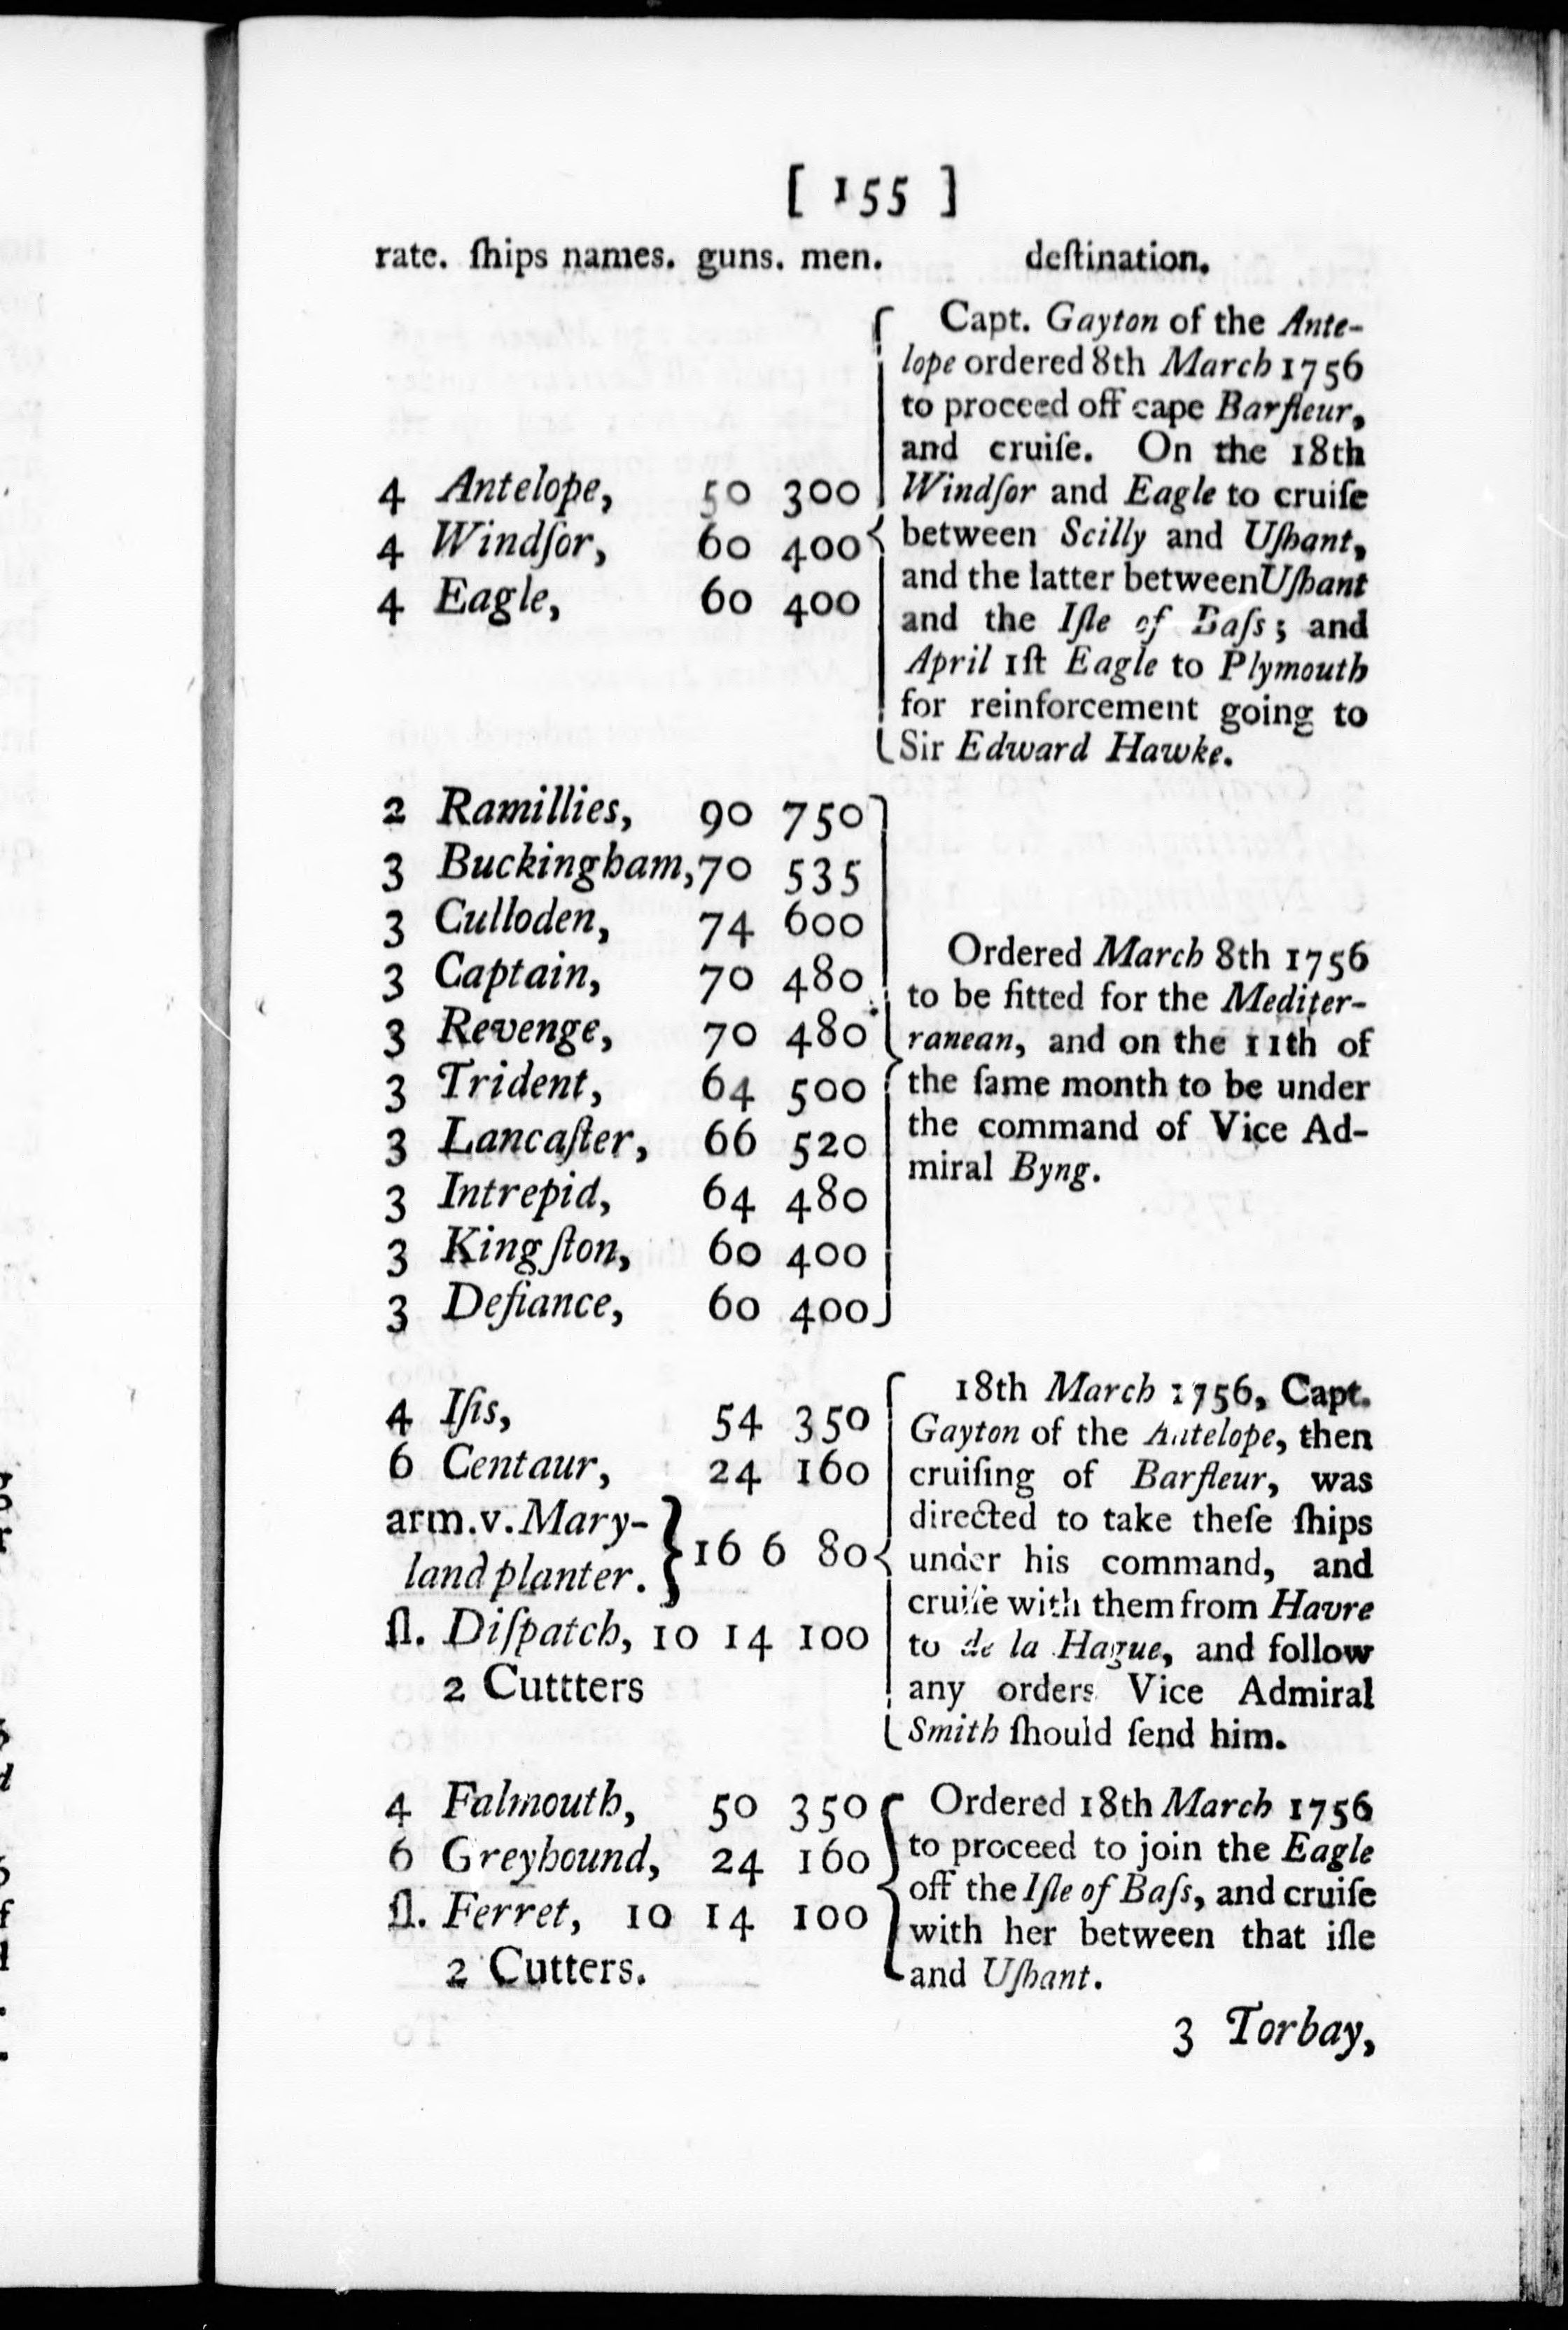 [ 155 ]
rate. ſhips names. guns. men. deſtination.
4 Antelope, 50 300
4 Windſor, 60 400
4 Eagle, 60 400
Capt. Gayton of the Ante-
lope ordered 8th March 1756
to proceed off cape Barfleur,
and cruiſe. On the 18th
Windſor and Eagle to cruiſe
between Scilly and Uſhant,
and the latter between Uſhant
and the Iſle of Baſs; and
April 1ſt Eagle to Plymouth
for reinforcement going to
Sir Edward Hawke.
2 Ramillies, 90 750
3 Buckingham, 70 535
3 Culloden, 74 600
3 Captain, 70 480
3 Revenge, 70 480
3 Trident, 64 500
3 Lancaſter, 66 520
3 Intrepid, 64 480
3 Kingſton, 60 400
3 Defiance, 60 400
Ordered March 8th 1756
to be fitted for the Mediter-
ranean, and on the 11th of
the ſame month to be under
the command of Vice Ad-
miral Byng.
4 Iſis, 54 350
6 Centaur, 24 160
arm.v. Mary-
land planter. 16 6 80
ſl. Diſpatch, 10 14 100
2 Cuttters
18th March 1756, Capt.
Gayton of the Antelope, then
cruiſing of Barfleur, was
directed to take theſe ſhips
under his command, and
cruiſe with them from Havre
to de la Hague, and follow
any orders Vice Admiral
Smith ſhould ſend him.
4 Falmouth, 50 350
6 Greyhound, 24 160
ſl. Ferret, 10 14 100
2 Cutters.
Ordered 18th March 1756
to proceed to join the Eagle
off the Iſle of Baſs, and cruiſe
with her between that iſle
and Uſhant.
3 Torbay,